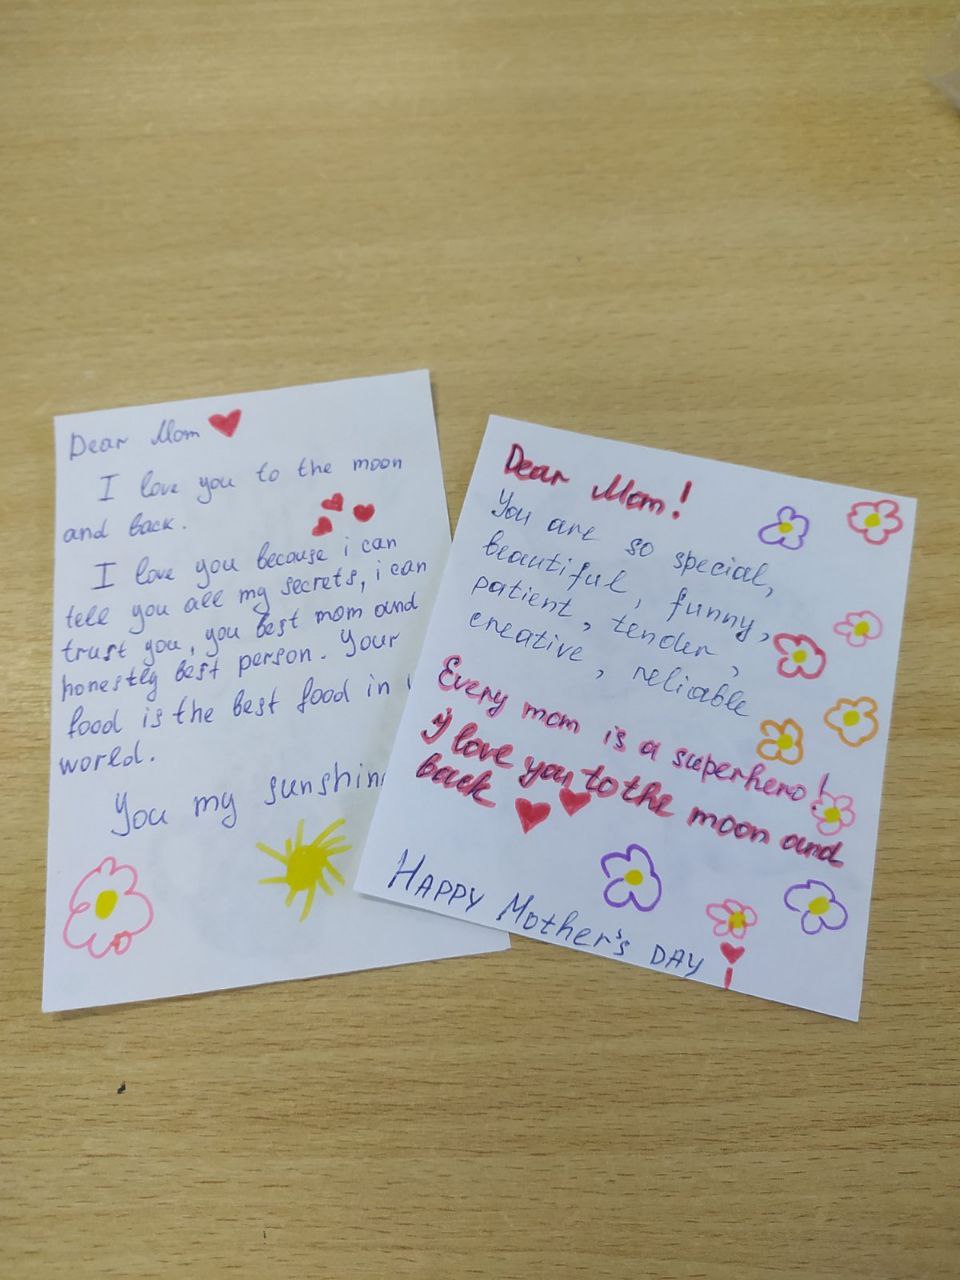 Dear Mom
I love you to the moon
and back.
I love you because i can
tell you all my secrets, i can
trust you, you best mom and
honestly best person. Your
food is the best food in
world.
You my sunshin
Dear Mom!
You are so special,
beautiful, funny,
patient, tender,
creative, reliable
Every mom is a superhero!
I love you to the moon and
back
HAPPY Mother's DAY